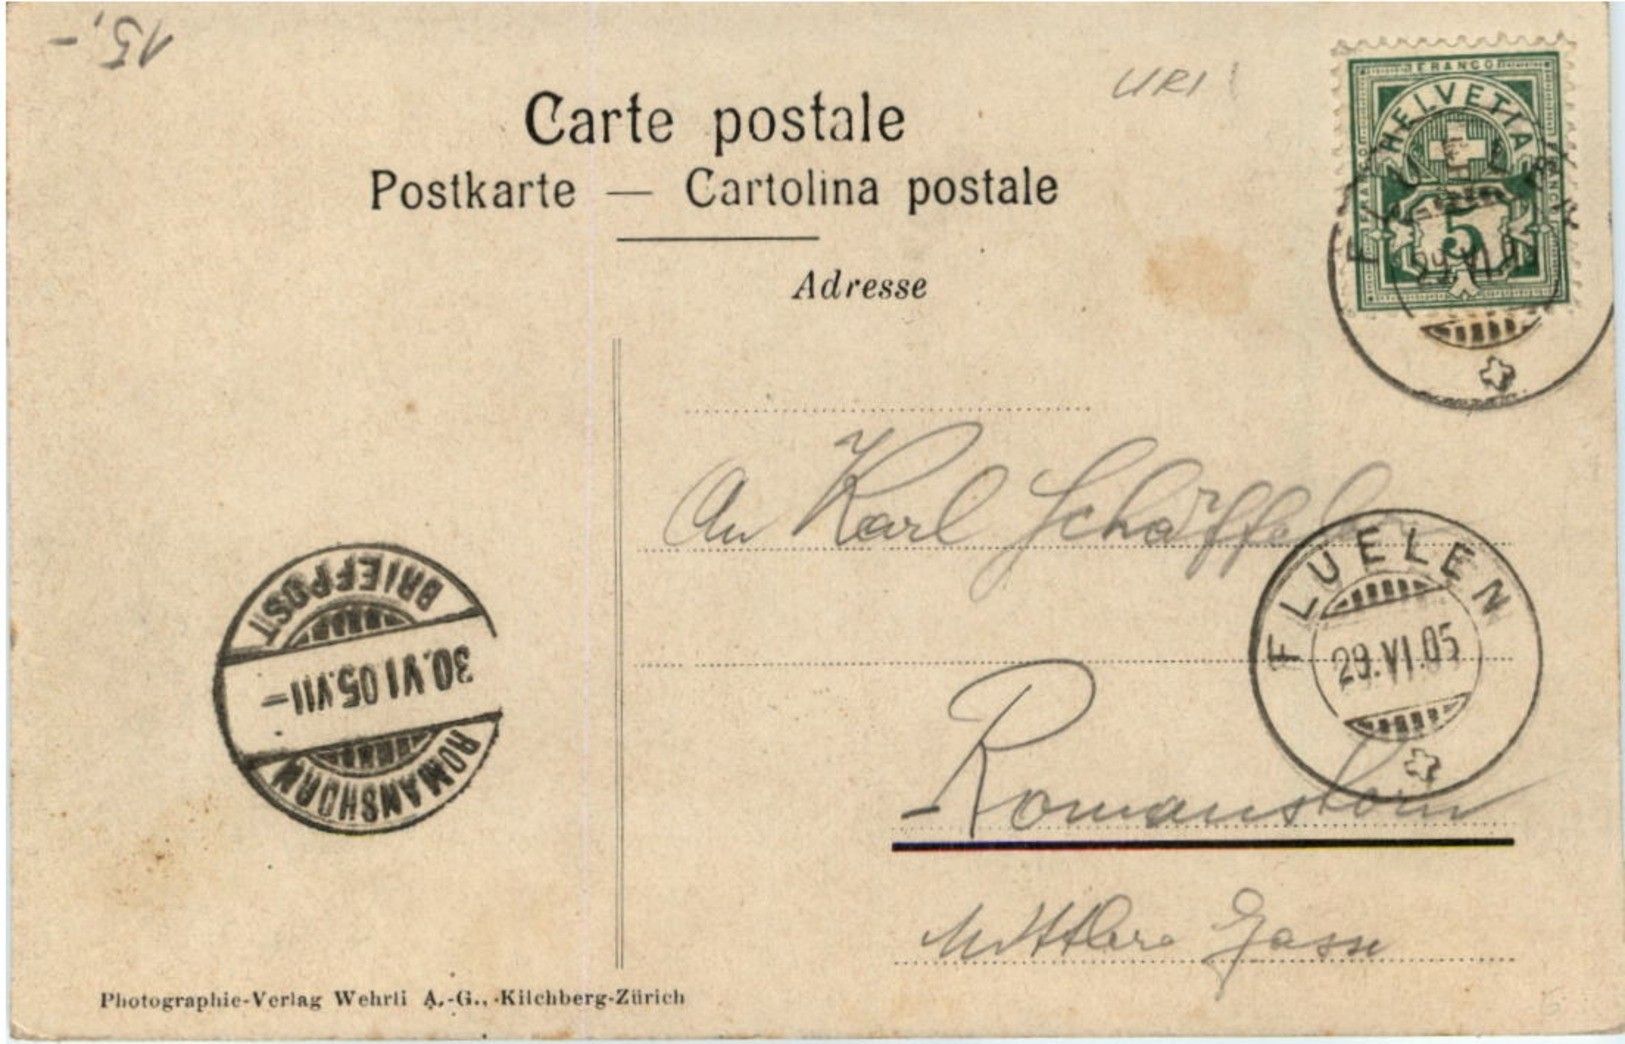 15,-
URI
Carte postale
Postkarte — Cartolina postale
Adresse
FRANCO
HELVETIA
5
FLUELEN
29.VI.05
An Karl Schäffeler
FLUELEN
29.VI.05
BRIEFPOST
30.VI 05.VII-
ROMANSHORN
Romanshorn
Mittlere Gasse
Photographie-Verlag Wehrli A.-G., Kilchberg-Zürich